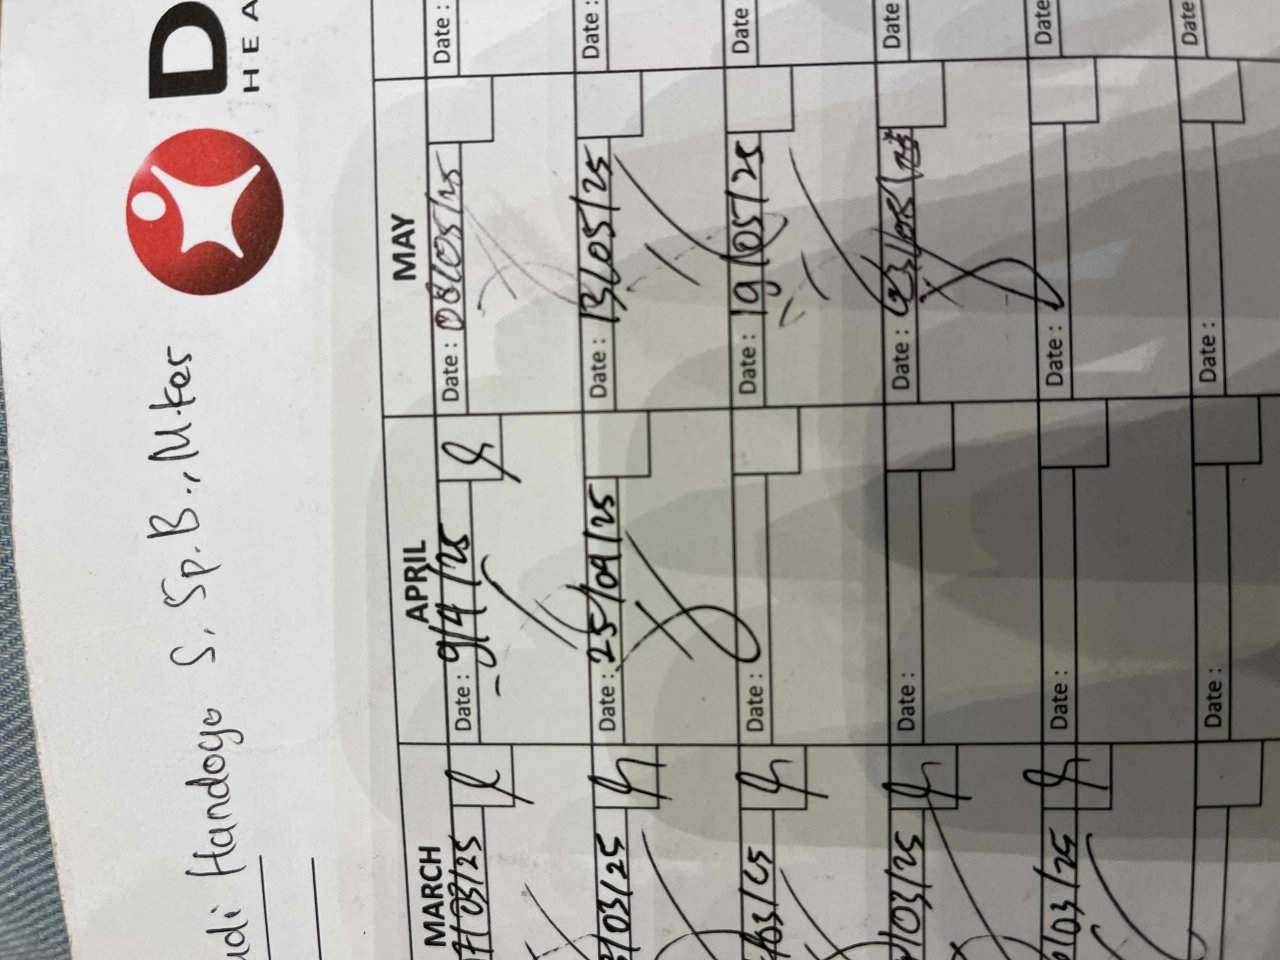 D
HEA
udi Handogo S, Sp.B., M.Kes
MARCH APRIL MAY
7/03/25
Date: 9/4/25
Date: 08/05/25
Date:
/03/25
Date: 25/04/25
Date: 13/05/25
Date:
/03/25
Date:
Date: 19/05/25
Date:
/03/25
Date:
Date:
Date:
/03/25
Date:
Date:
Date
Date:
Date:
Date